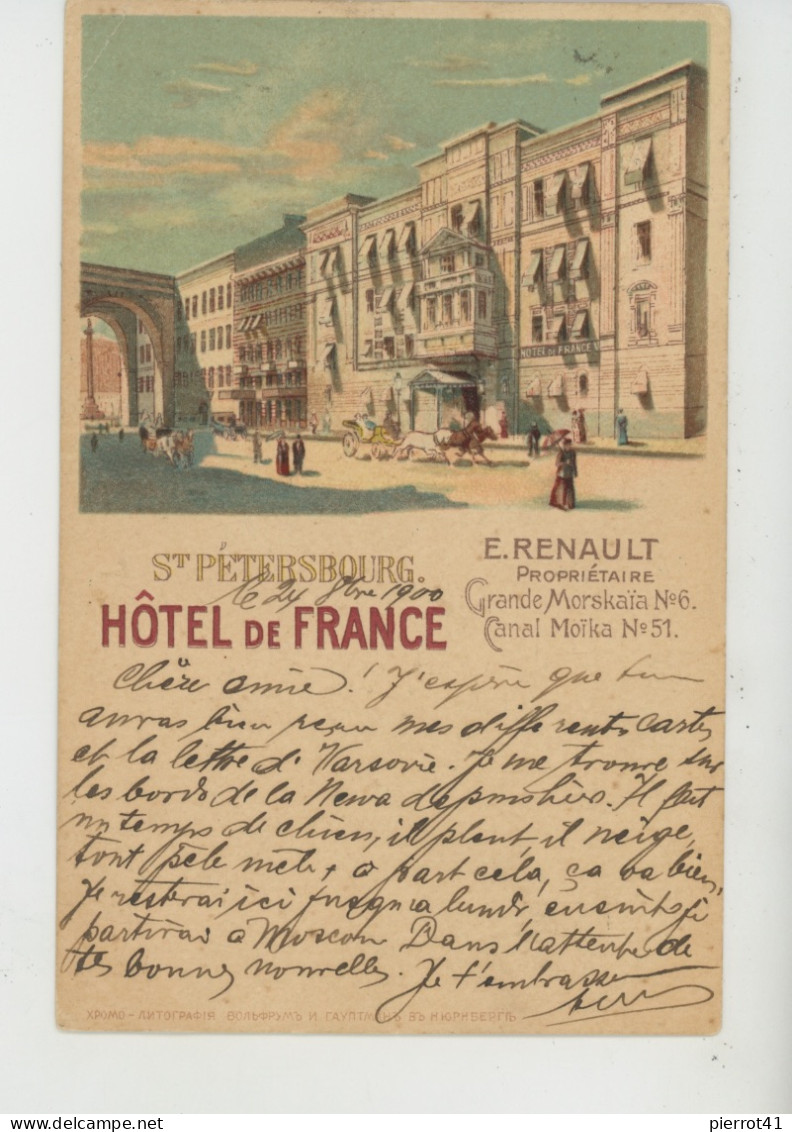 HOTEL DE FRANCE
ST PÉTERSBOURG.
E. RENAULT
PROPRIÉTAIRE
Grande Morskaïa No6.
Canal Moïka No51.
le 24 8bre 1900
HÔTEL DE FRANCE
Chère amie! J'espère que tu
auras bien reçu mes differents cartes
et la lettre de Varsovie. Je me trouve sur
les bords de la Newa depuis hier. Il fait
un temps de chien, il pleut, il neige,
tout pèle mêle, a part cela, ça va bien,
Je resterai ici jusqu'a lundi, ensuite je
partirai a Moscou Dans l'attente de
tes bonnes nouvelles. Je t'embrasse
ХРОМО-ЛИТОГРАФІЯ ВОЛЬФРУМЪ И ГАУПТМАНЪ ВЪ НЮРНБЕРГѢ
delcampe.net
pierrot41